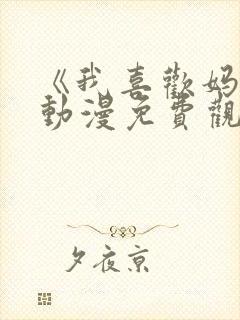 《我喜歡媽
動漫免費觀
夕夜京